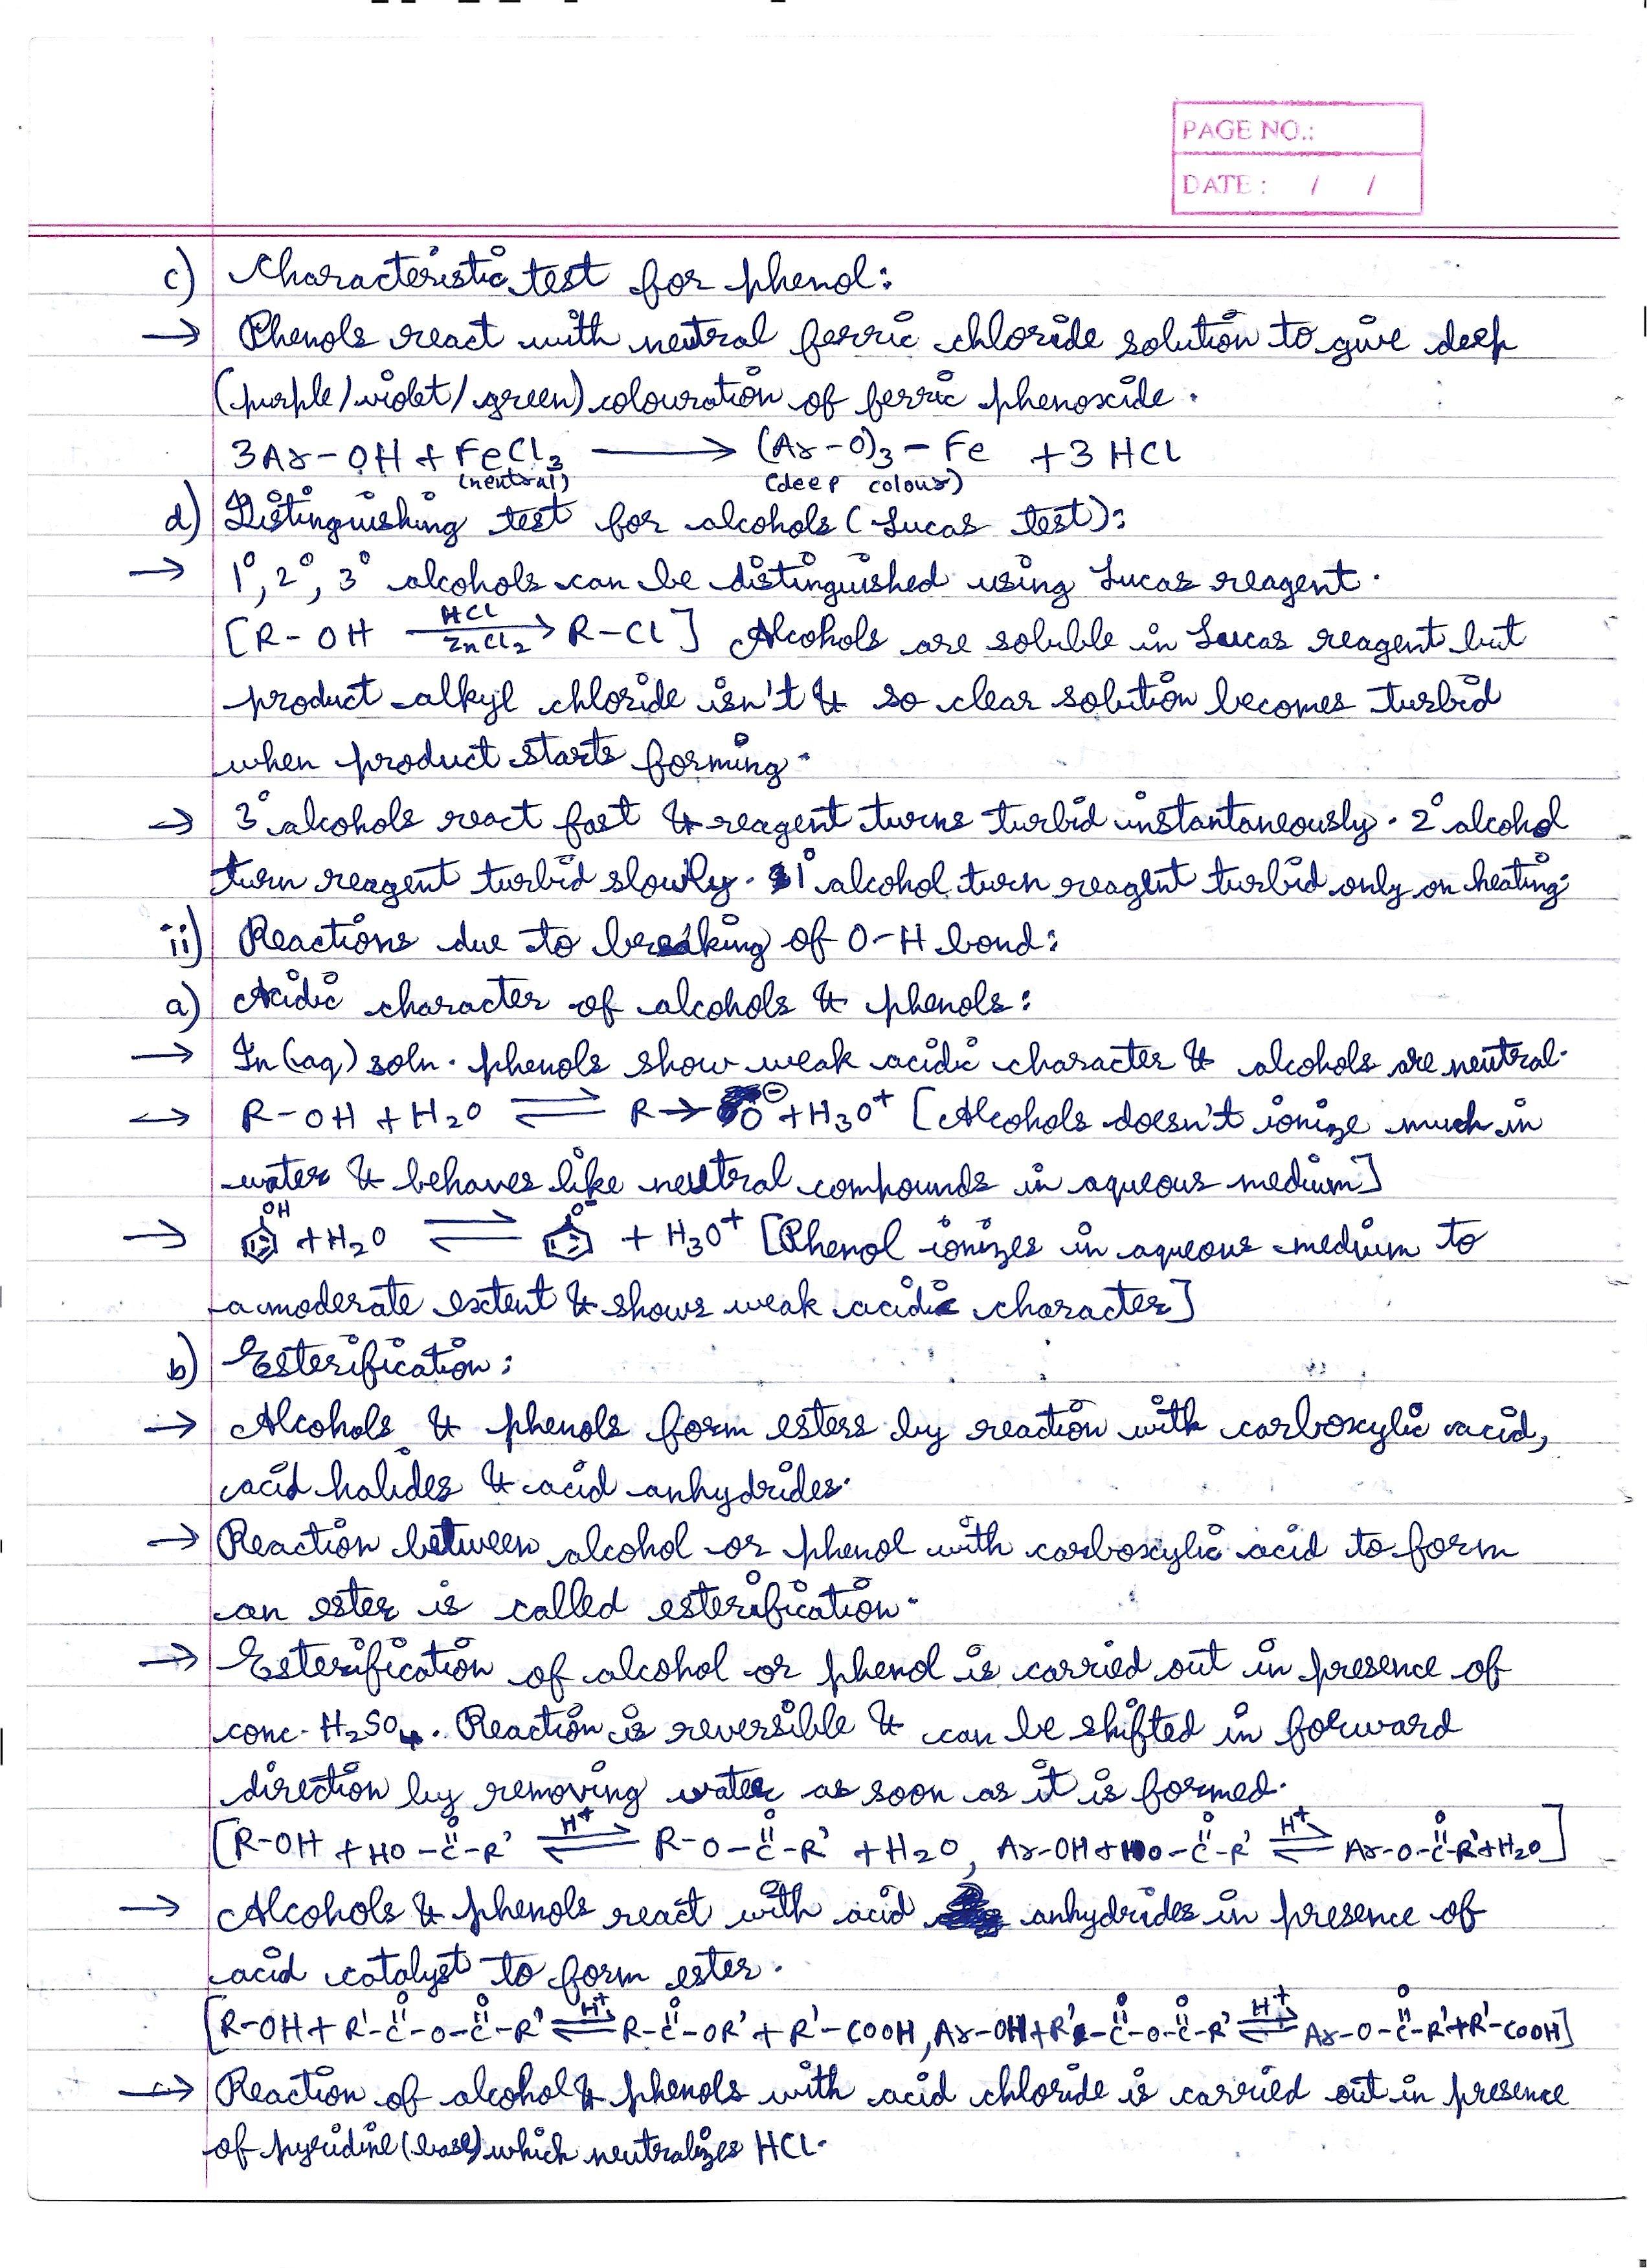 PAGE NO.:
DATE : / /
c) Characteristic test for phenol:
→ Phenols react with neutral ferric chloride solution to give deep
(purple/violet/green) colouration of ferric phenoxide.
3Ar-OH + FeCl3 ⟶ (Ar-O)3-Fe + 3 HCl
(neutral) (deep colour)
d) Distinguishing test for alcohols (Lucas test):
→ 1°, 2°, 3° alcohols can be distinguished using Lucas reagent.
HCl
[R-OH ⟶ R-Cl] Alcohols are soluble in Lucas reagent but
ZnCl2
product alkyl chloride isn't & so clear solution becomes turbid
when product starts forming.
→ 3° alcohols react fast & reagent turns turbid instantaneously. 2° alcohol
turn reagent turbid slowly. 1° alcohol turn reagent turbid only on heating.
ii) Reactions due to breaking of O-H bond:
a) Acidic character of alcohols & phenols:
→ In (aq) soln. phenols show weak acidic character & alcohols are neutral.
→ R-OH + H2O ⇌ R→O⊖ + H3O+ [Alcohols doesn't ionize much in
water & behaves like neutral compounds in aqueous medium]
OH O-
→ + H2O ⇌ + H3O+ [Phenol ionizes in aqueous medium to
a moderate extent & shows weak acidic character]
b) Esterification:
→ Alcohols & phenols form esters by reaction with carboxylic acid,
acid halides & acid anhydrides.
→ Reaction between alcohol or phenol with carboxylic acid to form
an ester is called esterification.
→ Esterification of alcohol or phenol is carried out in presence of
conc. H2SO4. Reaction is reversible & can be shifted in forward
direction by removing water as soon as it is formed.
O H+ O O H+ O
[R-OH + HO-C-R' ⇌ R-O-C-R' + H2O, Ar-OH + HO-C-R' ⇌ Ar-O-C-R' + H2O]
→ Alcohols & phenols react with acid anhydrides in presence of
acid catalyst to form ester.
O O H+ O O O H+ O
[R-OH + R'-C-O-C-R' ⇌ R-C-OR' + R'-COOH, Ar-OH + R'-C-O-C-R' ⇌ Ar-O-C-R' + R'-COOH]
→ Reaction of alcohol & phenols with acid chloride is carried out in presence
of pyridine (base) which neutralizes HCl.